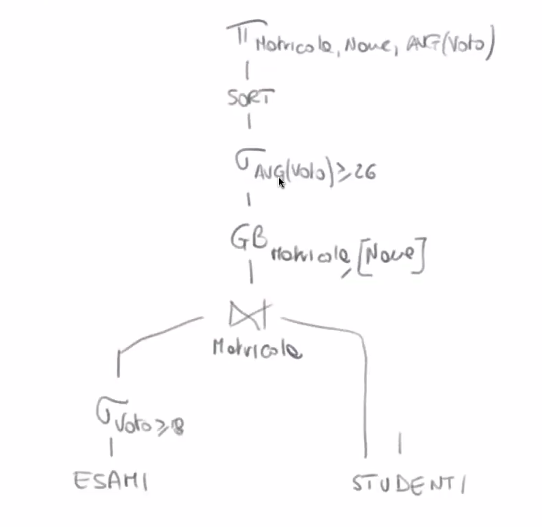 π Matricola, Nome, AVG(Voto)
SORT
σ AVG(Voto)≥26
GB Matricola, [Nome]
⋈
Matricola
σ Voto≥18
ESAMI
STUDENTI